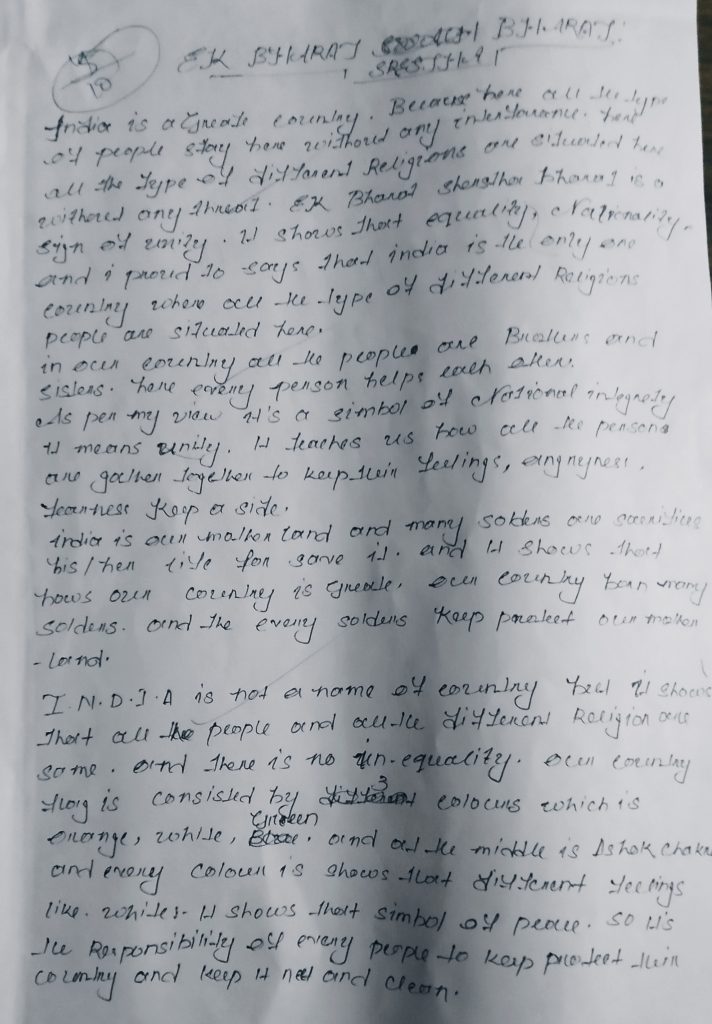 5/10
EK BHARAT BHARAT
SRESTHA
India is a Greate country. Because here all the type
of people stay here without any interfarance. here
all the type of different Religions are situated here
without any threat. EK Bharat Shersthar bharat is a
sign of unity. It shows that equality, Nationality.
and i proud to says that india is the only one
country where all the type of different Religions
people are situated here.
in our country all the peoples are Brothers and
sisters. here every person helps each other.
As per my view it's a simbol of National integrety
it means unity. It teaches us how all the persons
are gather together to keep their feelings, angryness,
Keep a side.
india is our mother land and many solders are sacrifices
his/her life for save it. and It shows that
hows our country is Greate. our country born many
solders. and the every solders keep protect our mother
-land.
I.N.D.I.A is not a name of country but it shows
that all the people and all the different Religion are
same. and there is no un-equality. our country
flag is consisted by 3 colours which is
orange, white, Green. and at the middle is Ashok chakra
and every colour is shows that different feelings
like. white:- It shows that simbol of peace. so it's
the Responsibility of every people to keep protect their
country and keep it neet and clean.